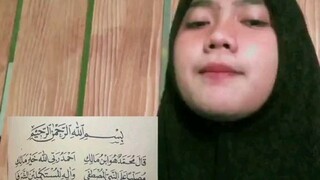 بِسْمِ اللهِ الرَّحْمٰنِ الرَّحِيْمِ
قَالَ مُحَمَّدٌ هُوَ ابْنُ مَالِكِ اَحْمَدُ رَبِّى اللهَ خَيْرَ مَالِكِ
مُصَلِّيًا عَلَى النَّبِيِّ الْمُصْطَفَى وَآلِهِ الْمُسْتَكْمِلِيْنَ